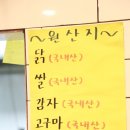 ~원산지~
닭(국내산)
쌀(국내산)
감자(국내산)
고구마(국내산)